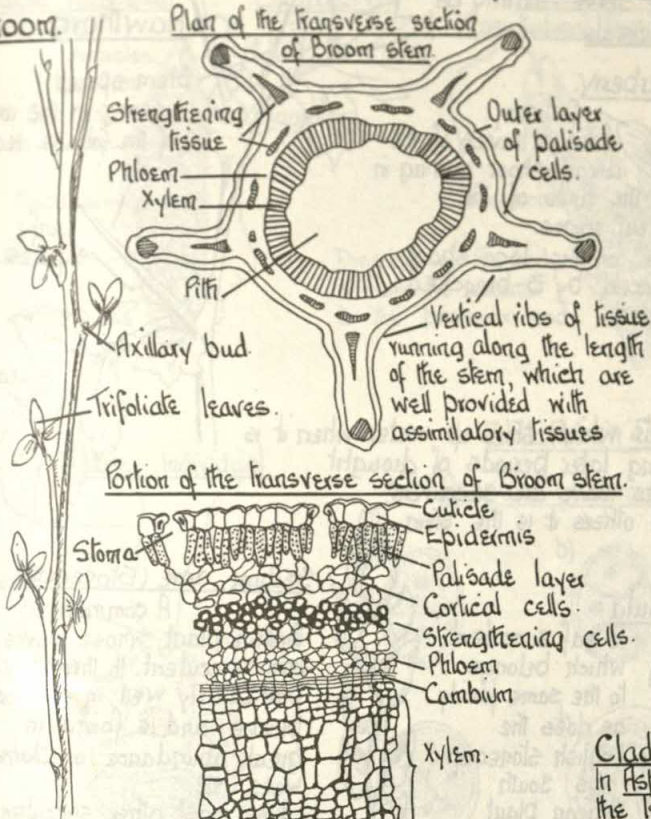 oom.
Plan of the transverse section
of Broom stem.
Strengthening
tissue
Phloem
Xylem
Pith
Outer layer
of palisade
cells.
Vertical ribs of tissue
running along the length
of the stem, which are
well provided with
assimilatory tissues
Axillary bud.
Trifoliate leaves.
Portion of the transverse section of Broom stem.
Stoma
Cuticle
Epidermis
Palisade layer
Cortical cells.
Strengthening cells.
Phloem
Cambium
Xylem.
Clad
in Asp
the